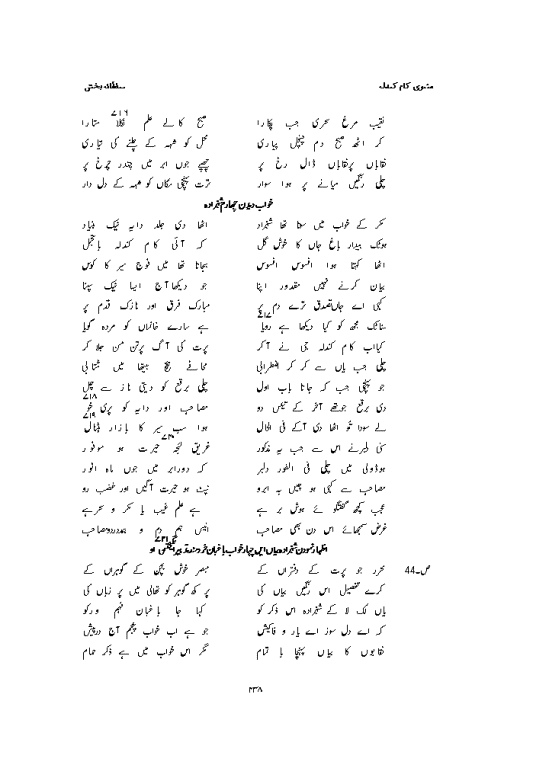 مثنوی کام کندلہ سلطانہ بختی
نقیب مرغ سحری جب پکارا صبح کا لے علم نکلا ستارا ۲۱۶
کر اٹھ صبح دم چنچل پیاری محل کو شہہ کے چلنے کی تیاری
نقاباں پرنقاباں ڈال رخ پر چھپے جوں ابر میں چندر چرخ پر
چلی رنگیں میانے پر ہوا سوار ترت پہنچی مکاں کو شہہ کے دل دار
خواب دیدن چہارم شہزادہ
مکر کے خواب میں ستا تھا شہزاد اٹھا دی جلد دایہ نیک بنیاد
ہوئک بیدار باغ جاں کا خوش گل کہ آئی کام کندلہ باتجمل
اٹھا کہتا ہوا افسوس افسوس بجاتا تھا میں فوج سیر کا کوس
بیاں کرنے نہیں مقدور اپنا جو دیکھا آج ایسا نیک سپنا
کہی اے جاں تصدق ترے دم پر مبارک فرق اور نازک قدم پر
سناٹک مجھ کو کیا دیکھا ہے رویا ۲۱۷ ہے سارے خانماں کو مردہ گویا
کہااب کام کندلہ جی نے آ کر پرت کی آگ پرتن من جلا کر
چلی جب یاں سے کر کر اضطرابی محافے بیچ بیٹھا میں شتابی
جو پہنچی جب کہ جانا باب اول چلی برقع کو دیتی ناز سے چل
دی برقع جوتھے آخر کے تیں دو مصاحب اور دایہ کو پری خو ۲۱۸
لے سودا تو اٹھا دی آکے فی الحال ہوا سب سیر کا بازار پامال ۲۱۹
سنی دلبر نے اس سے جب یہ مذکور غریق لجۂ حیرت ہو موفور ۲۲۰
ہوڈولی میں چلی فی الفور دلبر کہ دورابر میں جوں ماہ انور
مصاحب سے کہی ہو چیں بہ ابرو نپٹ ہو حیرت آگیں اور غضب رو
عجب کچھ گفتگو ئے ہوش بر ہے ہے علم غیب یا مکر و سحر ہے
غرض سمجھائے اس دن بھی مصاحب انیس ہم دم و ہمدرد و مصاحب
اظہار نمودن شہزادہ بیاں ایں چہار خواب باغباں خردمند تدبیر
ص۔44 محرر جو پرت کے دفتراں کے مبصر خوش سخن کے گوہراں کے
کرے تفصیل اس رنگیں بیاں کی پر کھ گوہر کو تھالی میں پر زباں کی
یاں لک لا کے شہزادہ اس ذکر کو کہا جا باغباں فہم ورکو
کہ اے دل سوز اے یار و فاکیش جو ہے اب خواب پنجم آج درپیش
نقابوں کا بیاں پہنچا با تمام مگر اس خواب میں ہے ذکر حمام
۲۳۸